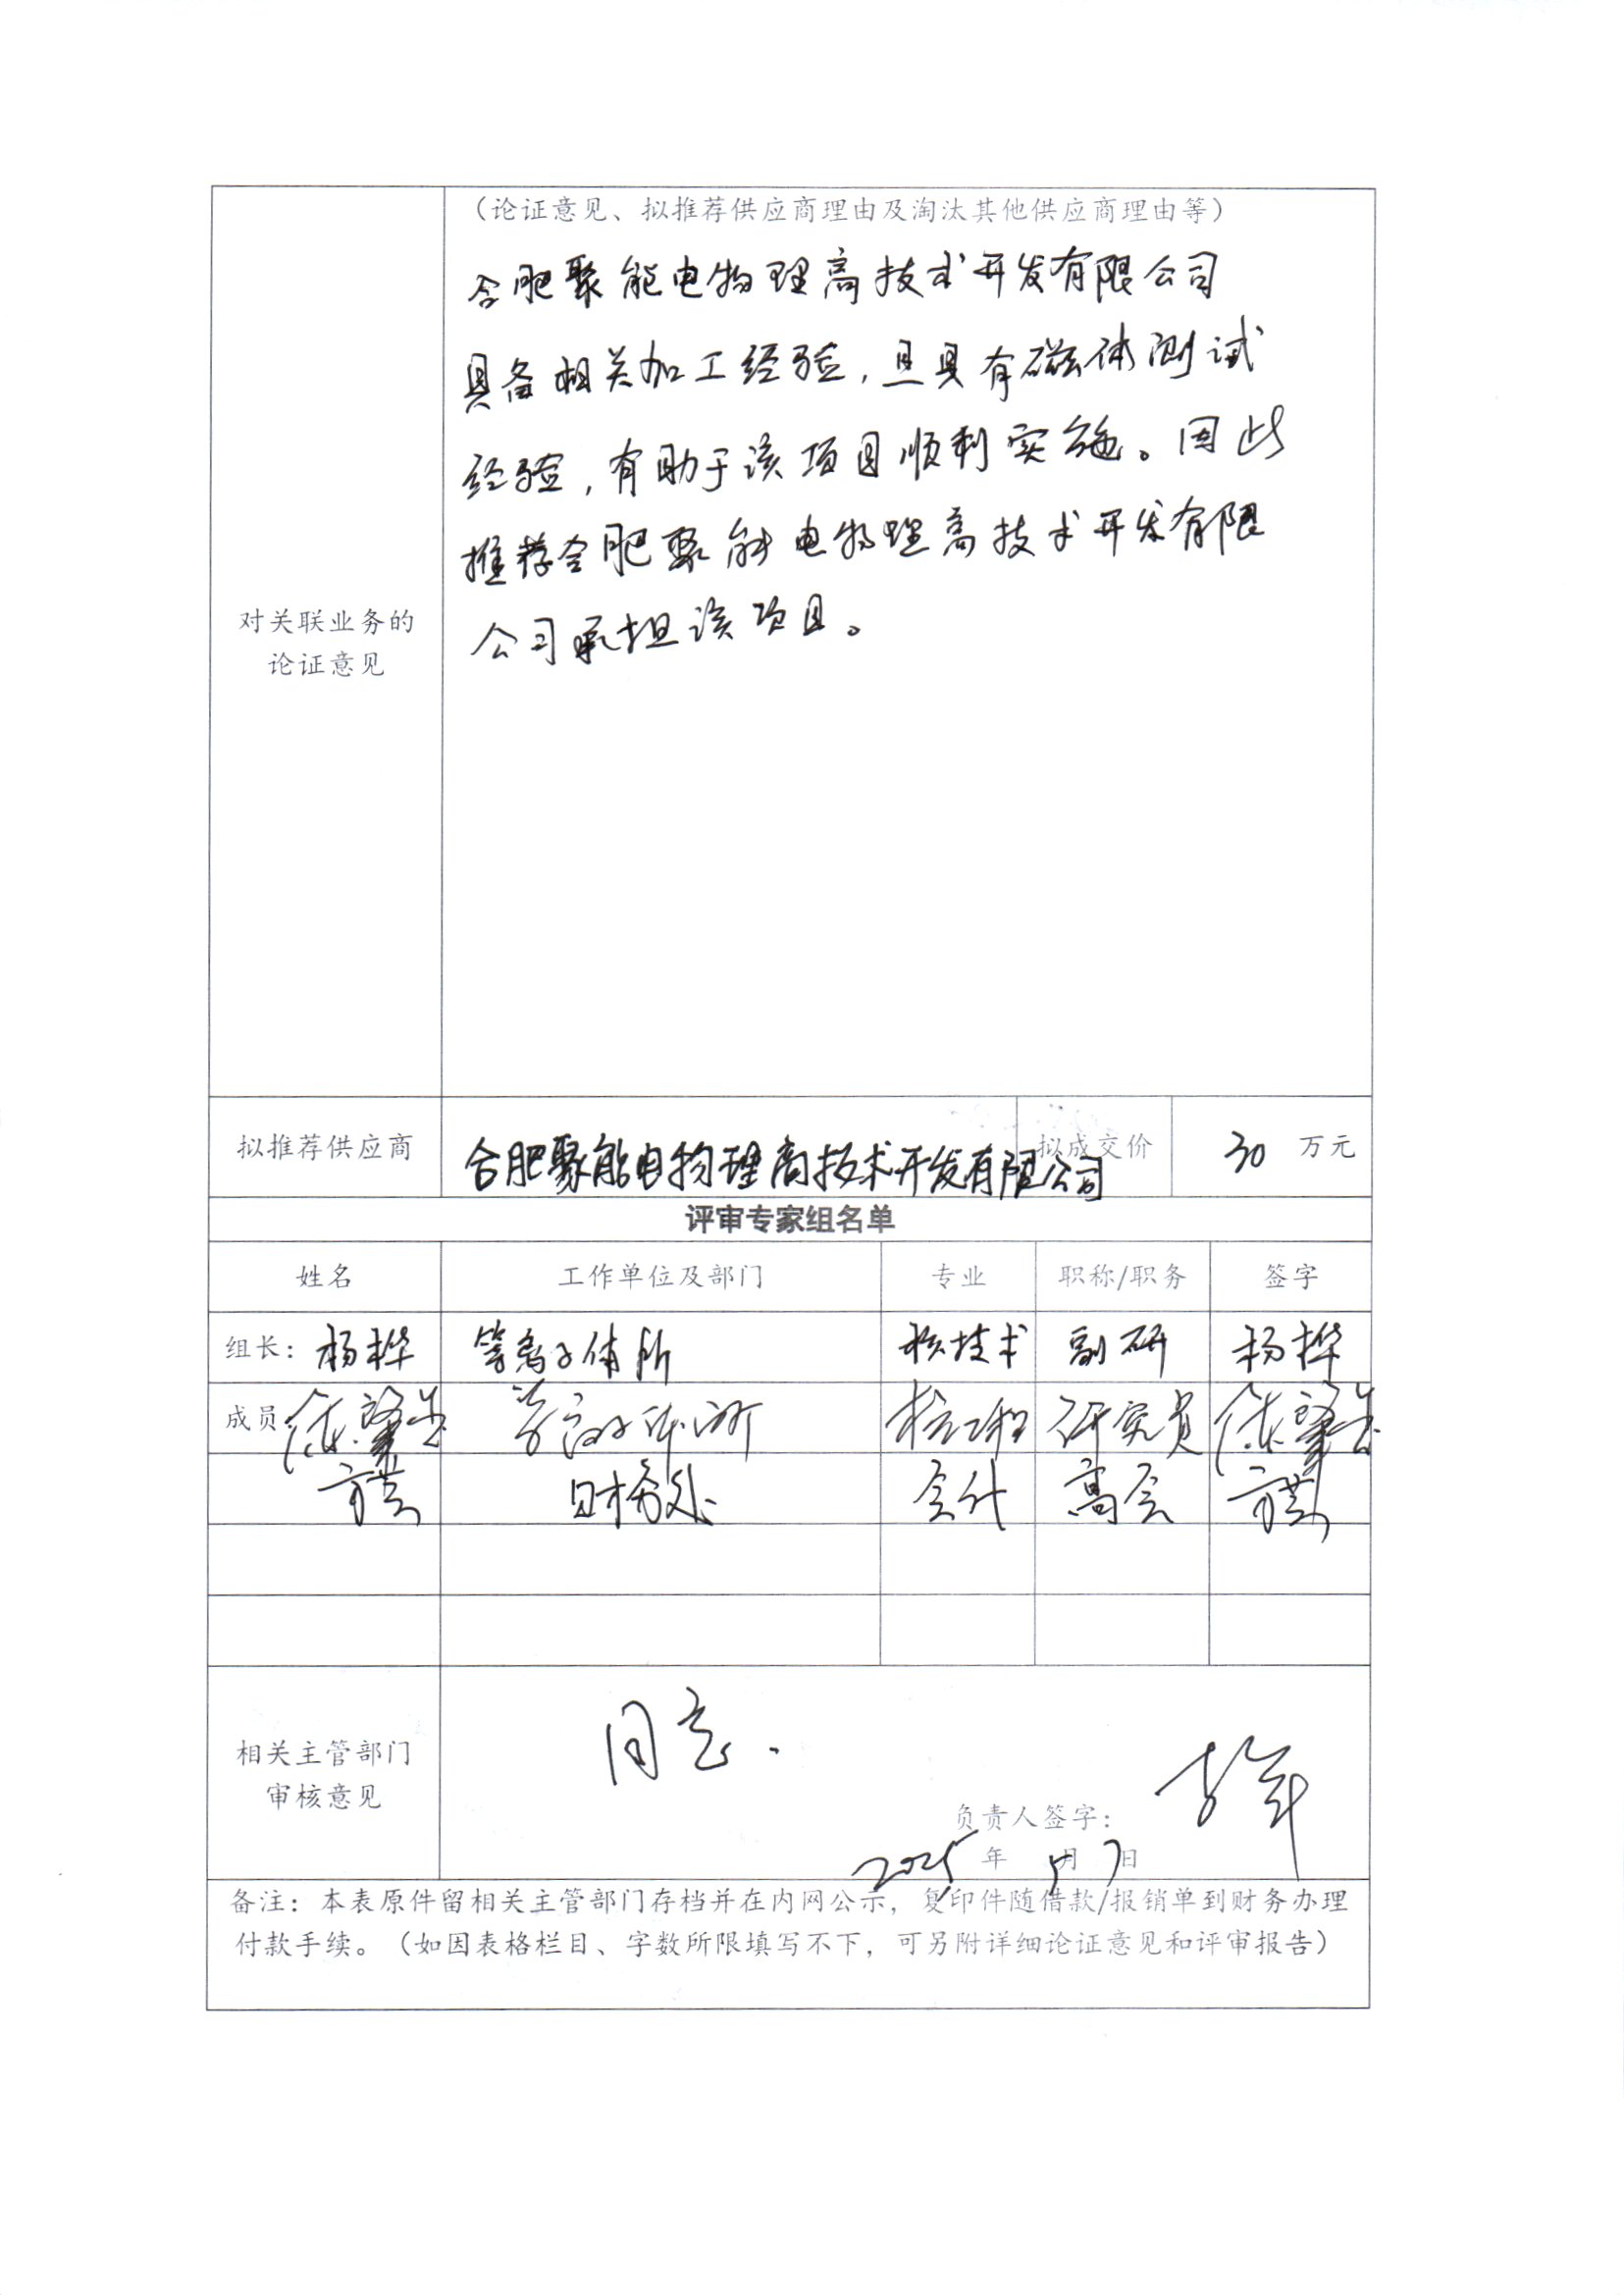 （论证意见、拟推荐供应商理由及淘汰其他供应商理由等）
合肥聚能电物理高技术开发有限公司
具备相关加工经验，且具有磁体测试
经验，有助于该项目顺利实施。因此
推荐合肥聚能电物理高技术开发有限
公司承担该项目。
对关联业务的
论证意见
拟推荐供应商 合肥聚能电物理高技术开发有限公司 拟成交价 30 万元
评审专家组名单
姓名 工作单位及部门 专业 职称/职务 签字
组长：杨桦 等离子体所 核技术 副研 杨桦
成员 等离子体所 核工程 研究员
财务处 会计 高会
相关主管部门
审核意见
同意.
负责人签字：
2025 年 5 月 7 日
备注：本表原件留相关主管部门存档并在内网公示，复印件随借款/报销单到财务办理
付款手续。（如因表格栏目、字数所限填写不下，可另附详细论证意见和评审报告）